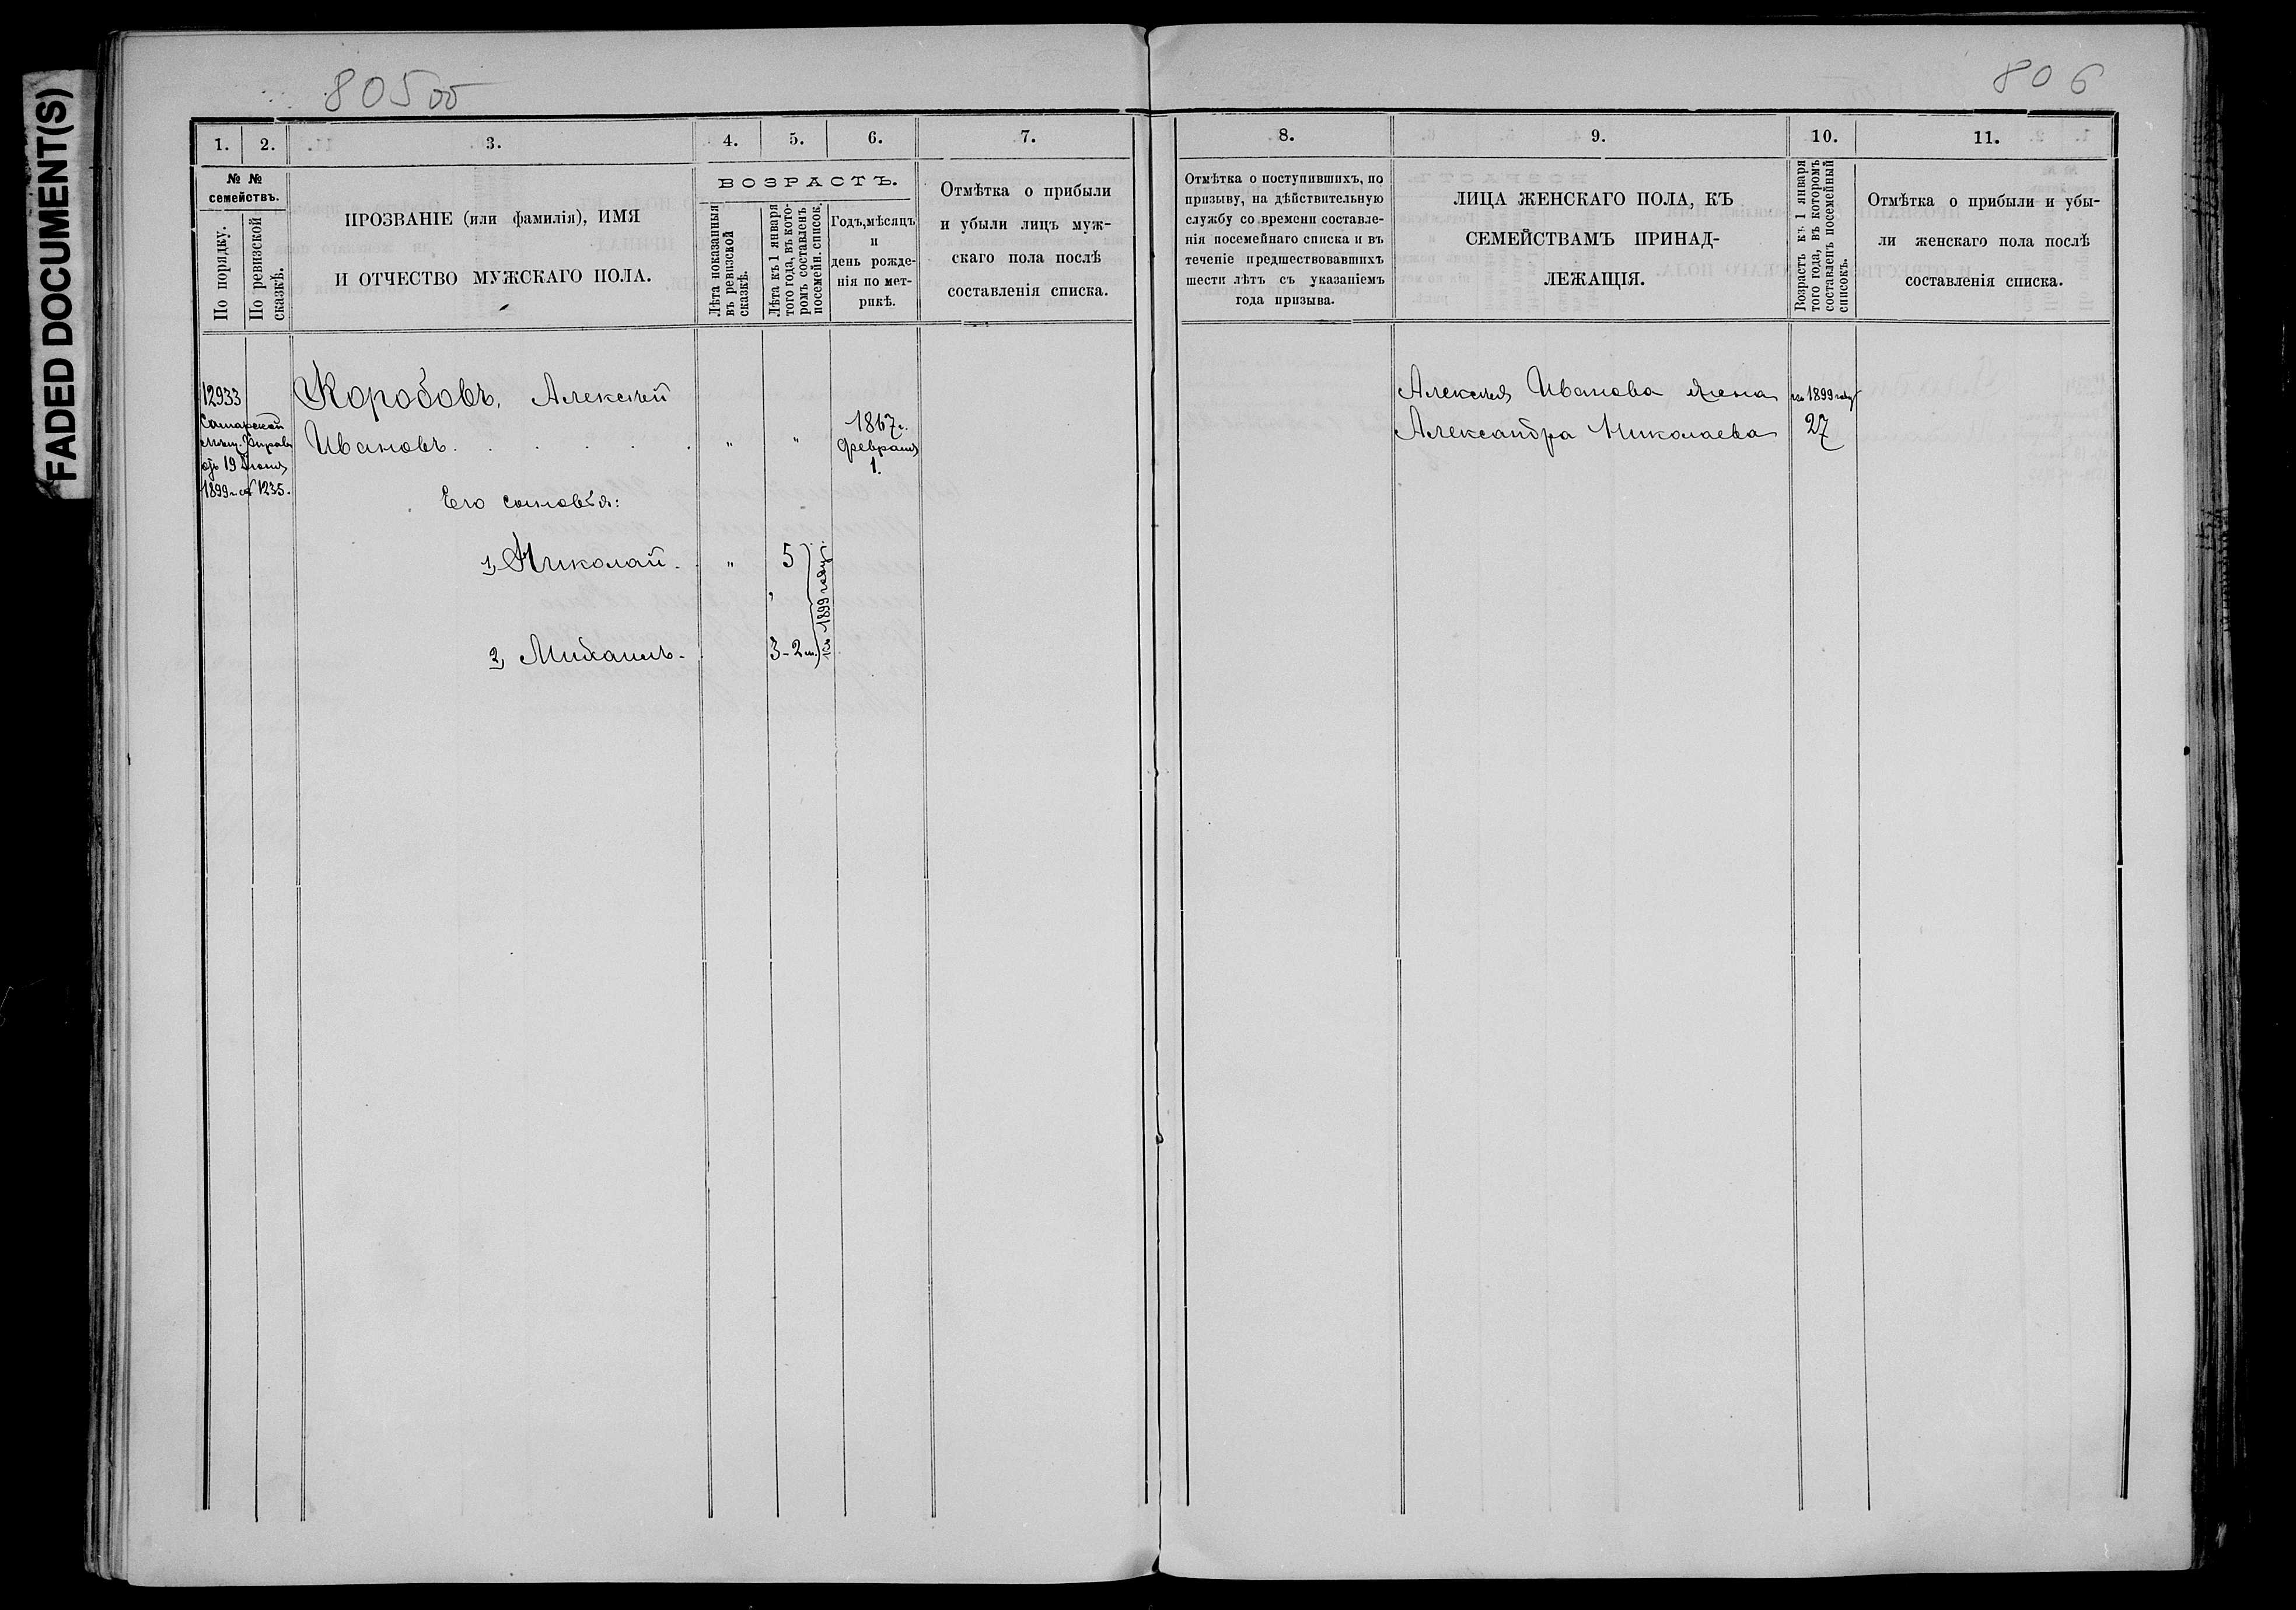 FADED DOCUMENT(S)
805 об
806
1.
2.
3.
4.
5.
6.
7.
№ №
семействъ.
По порядку.
По ревизской
сказкѣ.
ПРОЗВАНІЕ (или фамилія), ИМЯ
И ОТЧЕСТВО МУЖСКАГО ПОЛА.
ВОЗРАСТЪ.
Лѣта показанныя
въ ревизской
сказкѣ.
Лѣта къ 1 января
того года, въ кото-
ромъ составленъ
посемейн. список.
Годъ, мѣсяцъ
и
день рожде-
нія по мет-
рикѣ.
Отмѣтка о прибыли
и убыли лицъ муж-
скаго пола послѣ
составленія списка.
12933
Самарской
мѣщ. Управы
отъ 19 Июня
1899 г. № 1235.
Коробовъ, Алексѣй
Ивановъ.
" "
1867 г.
Февраля
1.
Его сыновья:
1, Николай.
"
5
2, Михаилъ.
3-2 м.
къ 1899 году.
8.
9.
10.
11.
Отмѣтка о поступившихъ, по
призыву, на дѣйствительную
службу со времени составле-
нія посемейнаго списка и въ
теченіе предшествовавшихъ
шести лѣтъ съ указаніемъ
года призыва.
ЛИЦА ЖЕНСКАГО ПОЛА, КЪ
СЕМЕЙСТВАМЪ ПРИНАД-
ЛЕЖАЩІЯ.
Возрастъ къ 1 января
того года, въ которомъ
составленъ посемейный
списокъ.
Отмѣтка о прибыли и убы-
ли женскаго пола послѣ
составленія списка.
Алексѣя Иванова жена
Александра Николаева
къ 1899 году
27